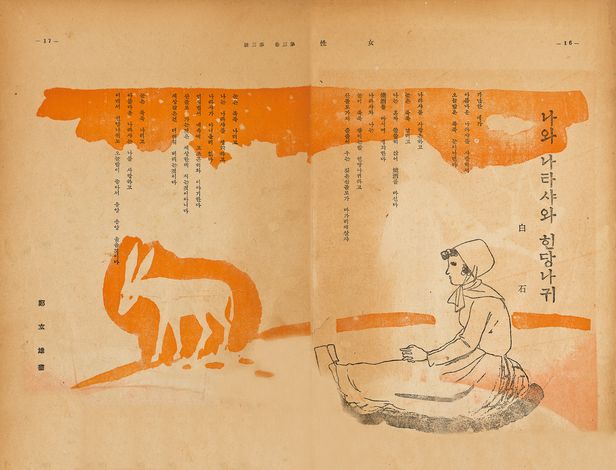 — 16 —
女 性
第三卷 第三號
— 17 —
나와 나타샤와 힌당나귀
白 石
가난한 내가
아름다운 나타샤를 사랑해서
오늘밤은 푹푹 눈이나린다
나타샤를 사랑은하고
눈은 푹푹 날리고
나는 혼자 쓸쓸히 앉어 燒酒를 마신다
燒酒를 마시며 생각한다
나타샤와 나는
눈이 푹푹 쌓이는밤 힌당나귀타고
산골로가쟈 출출이 우는 깊은산골로가 마가리에살쟈
눈은 푹푹 나리고
나는 나타샤를 생각하고
나타샤가 아니올리 없다
언제벌서 내속에 고조곤히와 이야기한다
산골로 가는것은 세상한테 지는것이아니다
세상같은건 더러워 버리는것이다
눈은 푹푹 나리고
아름다운 나타샤는 나를 사랑하고
어데서 힌당나귀도 오늘밤이 좋아서 응앙 응앙 울을것이다
鄭玄雄畵